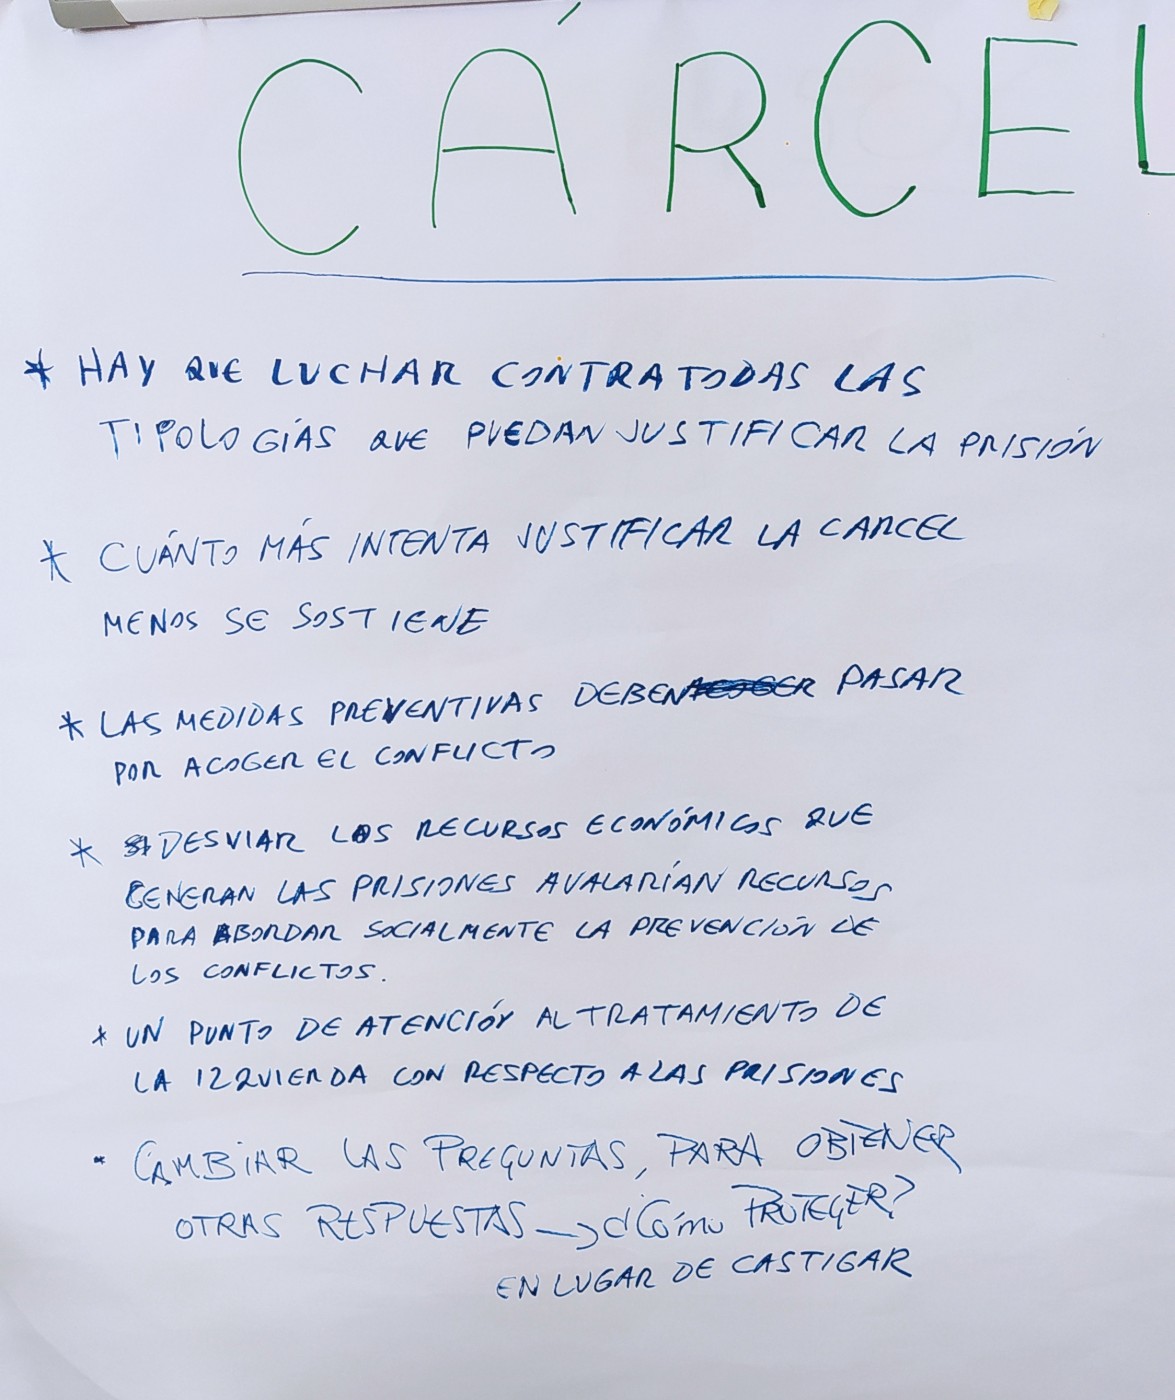 CÁRCEL
* HAY QUE LUCHAR CONTRA TODAS LAS
TIPOLOGÍAS QUE PUEDAN JUSTIFICAR LA PRISIÓN
* CUÁNTO MÁS INTENTA JUSTIFICAR LA CARCEL
MENOS SE SOSTIENE
* LAS MEDIDAS PREVENTIVAS DEBEN PASAR
POR ACOGER EL CONFLICTO
* DESVIAR LOS RECURSOS ECONÓMICOS QUE
GENERAN LAS PRISIONES AVALARÍAN RECURSOS
PARA ABORDAR SOCIALMENTE LA PREVENCIÓN DE
LOS CONFLICTOS.
* UN PUNTO DE ATENCIÓN AL TRATAMIENTO DE
LA IZQUIERDA CON RESPECTO A LAS PRISIONES
· CAMBIAR LAS PREGUNTAS, PARA OBTENER
OTRAS RESPUESTAS → ¿CÓMO PROTEGER?
EN LUGAR DE CASTIGAR